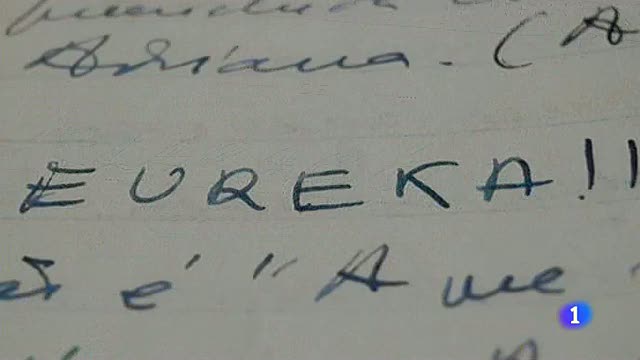 Adriana. (A
EUREKA!!
é "A me
1